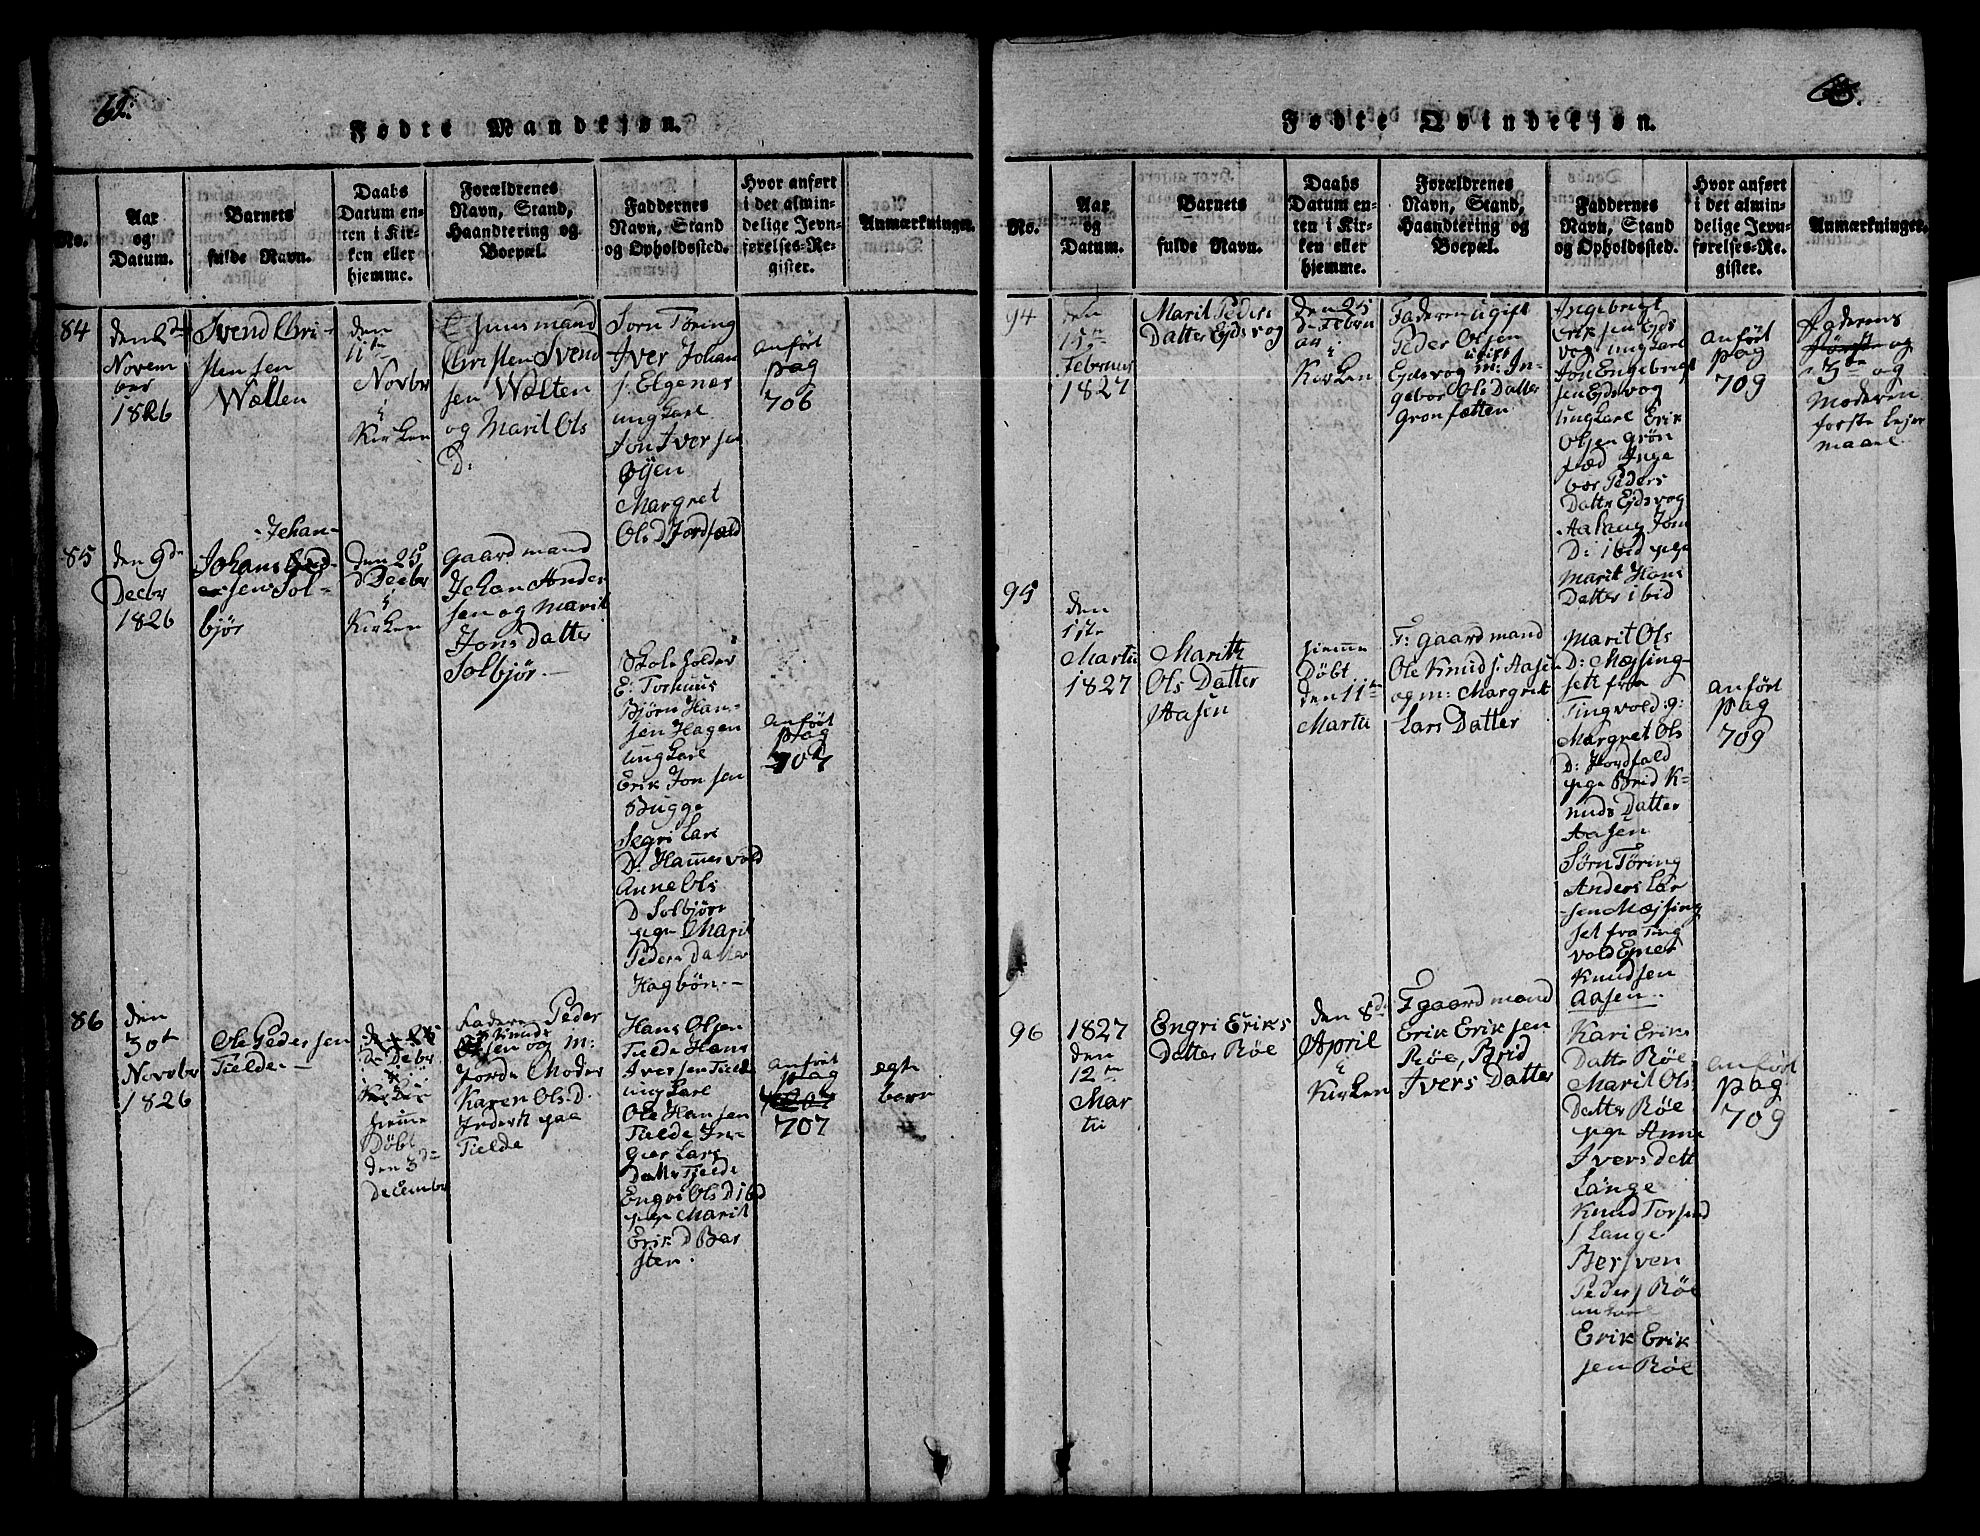 62.
Fødte Mandkjøn.
No.
Aar
og
Datum.
Barnets
fulde Navn.
Daabs
Datum en-
ten i Kir-
ken eller
hjemme.
Forældrenes
Navn, Stand,
Haandtering og
Boepæl.
Faddernes
Navn, Stand
og Opholdssted.
Hvor anført
i det almin-
delige Jevn-
førelses-Re-
gister.
Anmærkninger.
84
den 2de
Novem
ber
1826
Svend Chri-
stensen
Wælten
den
11te
Novbr
i
Kirken
Huusmand
Christen Svend
sen Wælten
og Marit Ols
D:
Sørn Tøring
Iver Johan
s. Elgenes
ungkarl
Jon Iversen
Øÿen
Margret
Ols D Jordfald
anført
pag
706
85
den 9de
Decbr
1826
Johan
Johans
sen Sol-
bjør
den 25
Decbr
i
Kirken
gaardmand
Johan Ander
sen og Marit
Jons Datter
Solbjør
Skoleholder
E: Torhuus
Bjørn Han-
sen Hagen
ungkarl
Erik Jonsen
Bugge
Segri Lars
D: Hammervold
Anne Ols
D Solbjør
pge Marit
Peders Datter
Hagbøn
anført
pag
707
86
den
30t
Novbr
1826
Ole Pedersen
Tielde
hjemme
Døbt
den 3de
December
Faderen Peder
Knuds
sen og M:
Jorde Moder
Karen Ols D.
Inderst paa
Tielde
Hans Olsen
Tielde Hans
Iversen Tield
ungkarl
Ole Hansen
Tielde In-
gier Lars
Datter Tielde
Engri Ols D ibd
pige Marit
Erik D Bar
sten.
anført
pag
707
egte
barn
63.
Fødte Qvindekjøn.
No.
Aar
og
Datum.
Barnets
fulde Navn.
Daabs
Datum en-
ten i Kir-
ken eller
hjemme.
Forældrenes
Navn, Stand,
Haandtering og
Boepæl.
Faddernes
Navn, Stand
og Opholdssted.
Hvor anført
i det almin-
delige Jevn-
førelses-Re-
gister.
Anmærkninger.
94
den
15de
Februar
1827
Marit Peders
Datter Ejdsvog
den 25
de Febru
ar
i
Kirken
Faderen ugift
Peder Olsen
ugift
Ejdsvog m: In-
gebor Ols Datter
Grønfætten
Ingebrigt
Eriksen Ejds
vog ungkarl
Jon Engebrigt
sen Ejdsvog
ungkarl Erik
Olsen Grøn
fæd Inge
bor Peders
Datter Ejdsvog
Aslaug Jon
D: ibid pge
Marit Hans
Datter ibid
anført
pag
709
Faderens
første og
3te og
Moderen
første lejer
maal
95
den
1ste
Martii
1827
Marith
Ols Datter
Aasen
hjemme
Døbt
den 11te
Martii
F: gaardmand
Ole Knuds: Aasen
og m: Margret
Lars Datter
Marit Ols
D: Mejsing-
sett fra
Tingvold: g:
Margret Ols
D: Hordfald
pge Brid K-
nuds Datter
Aasen
Sørn Tøring
Anders Lar
sen Mejsing
set fra Ting
vold Ejner
Knudsen
Aasen
anført
pag
709
96
1827
den
12te
Mar
tii
Engri Eriks
Datter Røe
den 8de
April
i
Kirken
F gaardmand
Erik Eriksen
Røe, Brid
Ivers Datter
Kari Eriks
Datter Røe
Marit Ols
Datter Røe
pge Anne
Ivers Datt
Lange
Knud Torsend
s Lange
Bersven
Peders Røe
Erik Erik
sen Røe
anført
pag
709